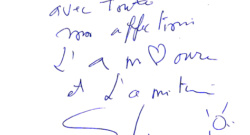 avec toute
mon affection
L'a m♡our
et L'amitié